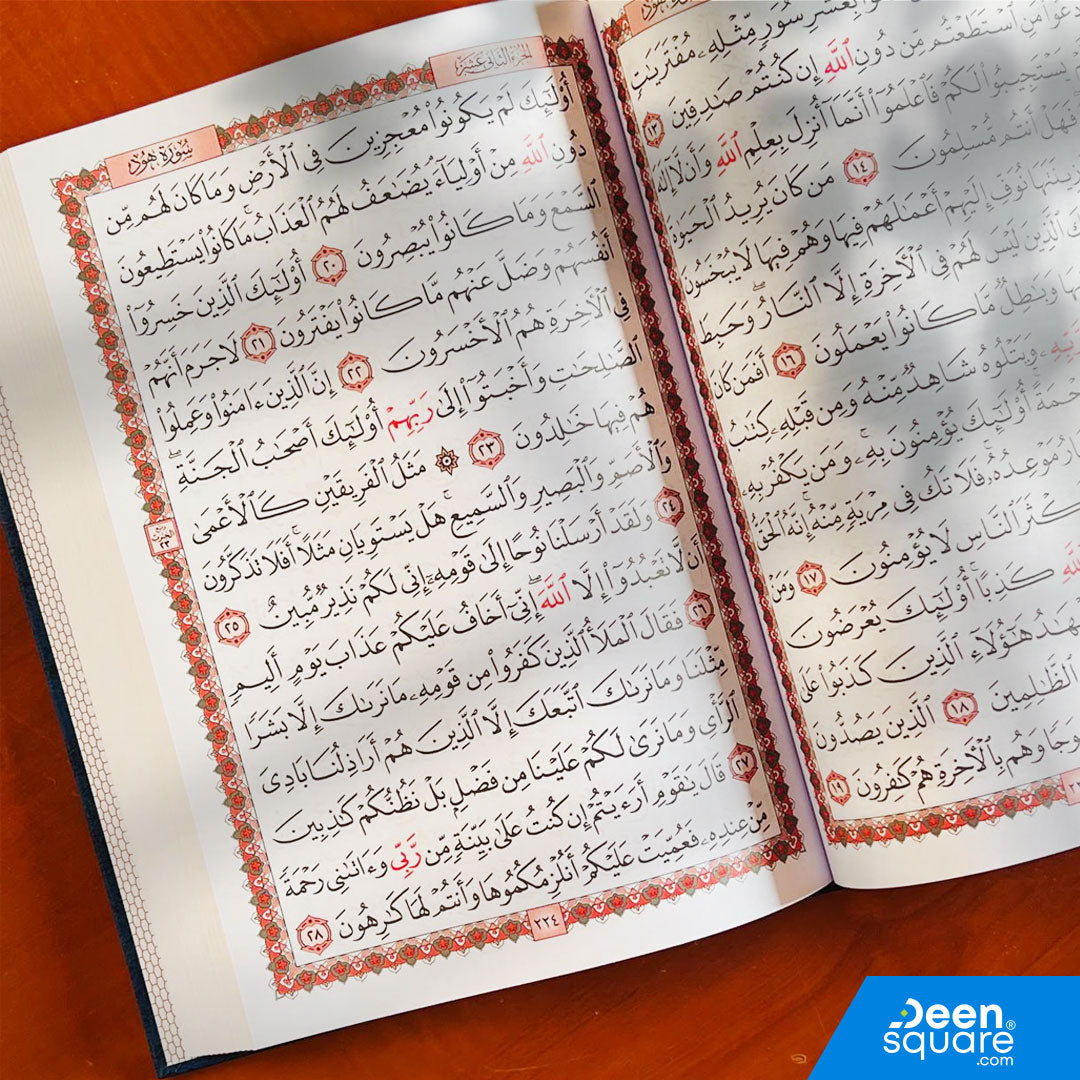 سُورَةُ هُودٍ
بِعَشْرِ سُوَرٍ مِّثْلِهِۦ مُفْتَرَيَٰتٍ
مَنِ ٱسْتَطَعْتُم مِّن دُونِ ٱللَّهِ إِن كُنتُمْ صَٰدِقِينَ ١٣
يَسْتَجِيبُوا۟ لَكُمْ فَٱعْلَمُوٓا۟ أَنَّمَآ أُنزِلَ بِعِلْمِ ٱللَّهِ وَأَن لَّآ إِلَٰهَ
فَهَلْ أَنتُم مُّسْلِمُونَ ١٤ مَن كَانَ يُرِيدُ ٱلْحَيَوٰةَ
وَزِينَتَهَا نُوَفِّ إِلَيْهِمْ أَعْمَٰلَهُمْ فِيهَا وَهُمْ فِيهَا لَا يُبْخَسُونَ
ٱلَّذِينَ لَيْسَ لَهُمْ فِى ٱلْءَاخِرَةِ إِلَّا ٱلنَّارُ وَحَبِطَ
وَبَٰطِلٌ مَّا كَانُوا۟ يَعْمَلُونَ ١٦ أَفَمَن كَانَ
وَيَتْلُوهُ شَاهِدٌ مِّنْهُ وَمِن قَبْلِهِۦ كِتَٰبُ
أُو۟لَٰٓئِكَ يُؤْمِنُونَ بِهِۦ وَمَن يَكْفُرْ بِهِۦ
مَوْعِدُهُۥ فَلَا تَكُ فِى مِرْيَةٍ مِّنْهُ إِنَّهُ ٱلْحَقُّ
ٱلنَّاسِ لَا يُؤْمِنُونَ ١٧ وَمَنْ
ٱللَّهِ كَذِبًا أُو۟لَٰٓئِكَ يُعْرَضُونَ
هَٰٓؤُلَآءِ ٱلَّذِينَ كَذَبُوا۟ عَلَىٰ
ٱلظَّٰلِمِينَ ١٨ ٱلَّذِينَ يَصُدُّونَ
وَهُم بِٱلْءَاخِرَةِ هُمْ كَٰفِرُونَ ١٩
الجزء الثاني عشر
سُورَةُ هُودٍ
أُو۟لَٰٓئِكَ لَمْ يَكُونُوا۟ مُعْجِزِينَ فِى ٱلْأَرْضِ وَمَا كَانَ لَهُم مِّن
دُونِ ٱللَّهِ مِنْ أَوْلِيَآءَ يُضَٰعَفُ لَهُمُ ٱلْعَذَابُ مَا كَانُوا۟ يَسْتَطِيعُونَ
ٱلسَّمْعَ وَمَا كَانُوا۟ يُبْصِرُونَ ٢٠ أُو۟لَٰٓئِكَ ٱلَّذِينَ خَسِرُوٓا۟
أَنفُسَهُمْ وَضَلَّ عَنْهُم مَّا كَانُوا۟ يَفْتَرُونَ ٢١ لَا جَرَمَ أَنَّهُمْ
فِى ٱلْءَاخِرَةِ هُمُ ٱلْأَخْسَرُونَ ٢٢ إِنَّ ٱلَّذِينَ ءَامَنُوا۟ وَعَمِلُوا۟
ٱلصَّٰلِحَٰتِ وَأَخْبَتُوٓا۟ إِلَىٰ رَبِّهِمْ أُو۟لَٰٓئِكَ أَصْحَٰبُ ٱلْجَنَّةِ
هُمْ فِيهَا خَٰلِدُونَ ٢٣ مَثَلُ ٱلْفَرِيقَيْنِ كَٱلْأَعْمَىٰ
وَٱلْأَصَمِّ وَٱلْبَصِيرِ وَٱلسَّمِيعِ هَلْ يَسْتَوِيَانِ مَثَلًا أَفَلَا تَذَكَّرُونَ
٢٤ وَلَقَدْ أَرْسَلْنَا نُوحًا إِلَىٰ قَوْمِهِۦٓ إِنِّى لَكُمْ نَذِيرٌ مُّبِينٌ ٢٥
أَن لَّا تَعْبُدُوٓا۟ إِلَّا ٱللَّهَ إِنِّىٓ أَخَافُ عَلَيْكُمْ عَذَابَ يَوْمٍ أَلِيمٍ
٢٦ فَقَالَ ٱلْمَلَأُ ٱلَّذِينَ كَفَرُوا۟ مِن قَوْمِهِۦ مَا نَرَىٰكَ إِلَّا بَشَرًا
مِّثْلَنَا وَمَا نَرَىٰكَ ٱتَّبَعَكَ إِلَّا ٱلَّذِينَ هُمْ أَرَاذِلُنَا بَادِىَ
ٱلرَّأْىِ وَمَا نَرَىٰ لَكُمْ عَلَيْنَا مِن فَضْلٍۭ بَلْ نَظُنُّكُمْ كَٰذِبِينَ
٢٧ قَالَ يَٰقَوْمِ أَرَءَيْتُمْ إِن كُنتُ عَلَىٰ بَيِّنَةٍ مِّن رَّبِّى وَءَاتَىٰنِى رَحْمَةً
مِّنْ عِندِهِۦ فَعُمِّيَتْ عَلَيْكُمْ أَنُلْزِمُكُمُوهَا وَأَنتُمْ لَهَا كَٰرِهُونَ ٢٨
٢٢٤
Deen
square®
.com